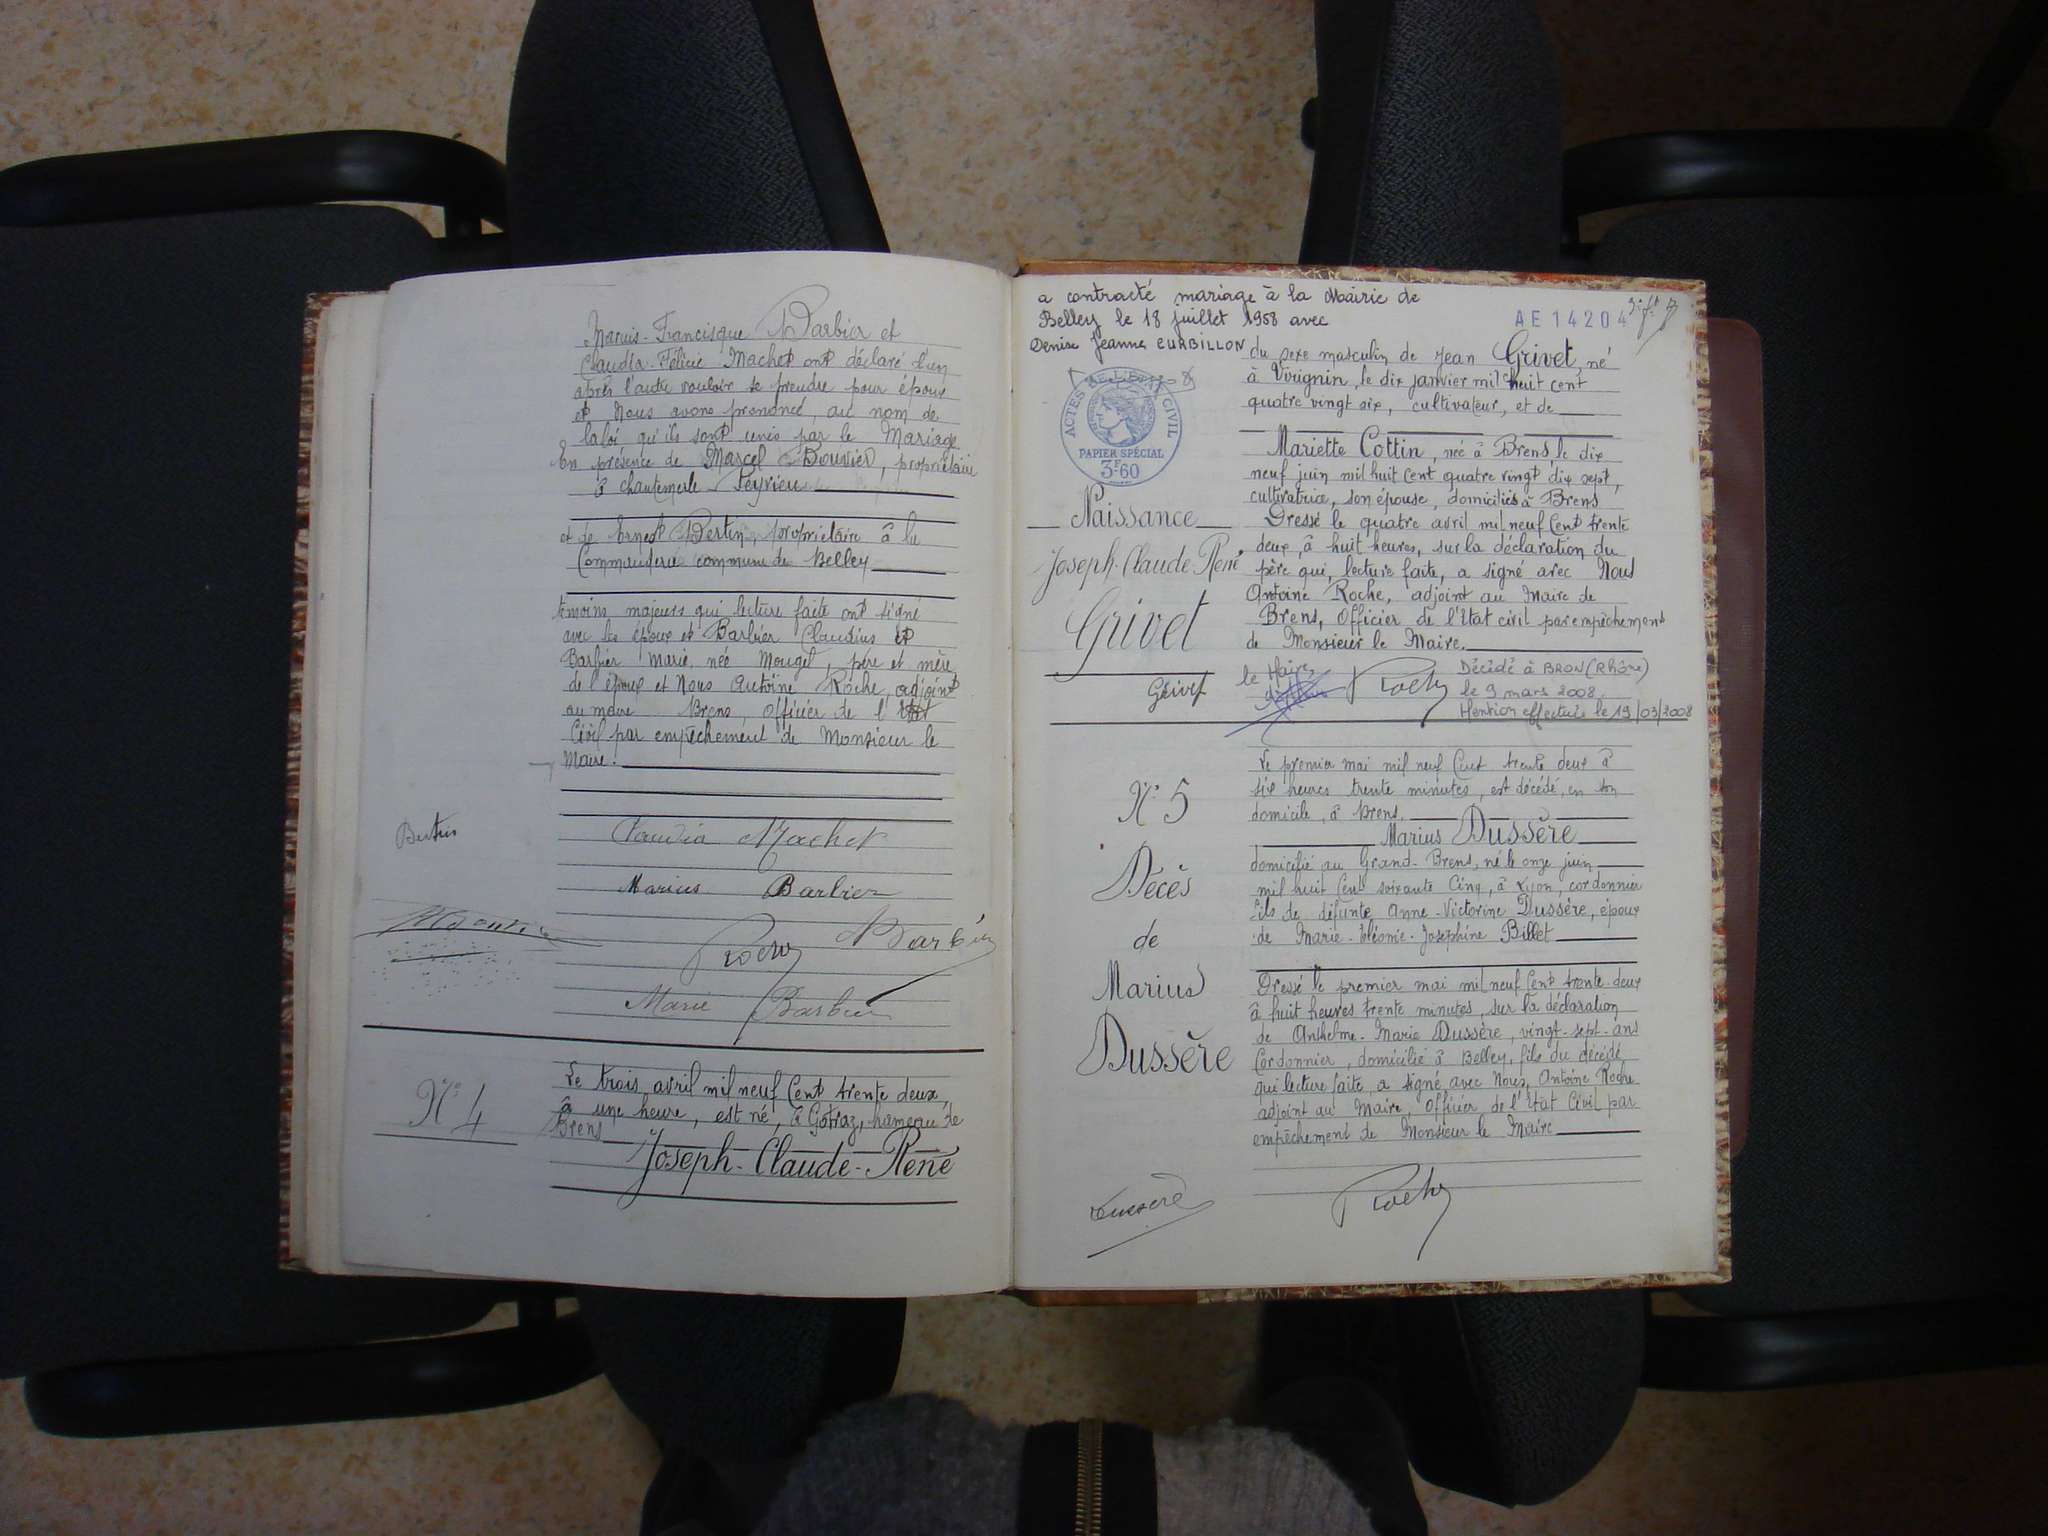 Marius-Francisque Barbier et
Claudia-Félicie Machet ont déclaré l'un
après l'autre vouloir se prendre pour époux
et Nous avons prononcé, au nom de
la loi qu'ils sont unis par le Mariage
En présence de Marcel Bouvier, propriétaire
à Chantemerle Peyrieu
et de Ernest Bertin, propriétaire à la
Commanderie commune de Belley
témoins majeurs qui lecture faite ont signé
avec les époux et Barbier Claudius et
Barbier Marie, née Mougel, père et mère
de l'époux et Nous Antoine Roche, adjoint
au maire Brens, Officier de l'Etat
Civil par empêchement de Monsieur le
Maire.
Bertin
Claudia Machet
Marius Barbier
Barbier
Roche
Marie Barbier
N° 4
Le trois avril mil neuf Cent trente deux,
à une heure, est né, à Gotraz, hameau de
Brens
Joseph-Claude-René
a contracté mariage à la Mairie de
Belley le 18 juillet 1958 avec
Denise Jeanne CURBILLON
AE 14204
ACTES DE L'ETAT CIVIL
PAPIER SPÉCIAL
3F60
Naissance
Joseph-Claude-René
Grivet
du sexe masculin de Jean Grivet, né
à Virignin, le dix janvier mil huit cent
quatre vingt six, cultivateur, et de
Mariette Cottin, née à Brens, le dix
neuf juin mil huit cent quatre vingt dix sept,
cultivatrice, son épouse, domiciliés à Brens
Dressé le quatre avril mil neuf Cent trente
deux, à huit heures, sur la déclaration du
père qui, lecture faite, a signé avec Nous
Antoine Roche, adjoint au Maire de
Brens, Officier de l'Etat civil par empêchement
de Monsieur le Maire.
Grivet
le Maire
Roche
Décédé à BRON (Rhône)
le 9 mars 2008.
Mention effectuée le 19/03/2008
N° 5
Décès
de
Marius
Dussère
Le premier mai mil neuf Cent trente deux à
six heures trente minutes, est décédé, en son
domicile, à Brens,
Marius Dussère
domicilié au Grand-Brens, né le onze juin
mil huit Cent soixante Cinq, à Lyon, cordonnier
fils de défunte Anne-Victorine Dussère, époux
de Marie-Cléonie-Joséphine Billet
Dressé le premier mai mil neuf Cent trente-deux
à huit heures trente minutes, sur la déclaration
de Anthelme-Marie Dussère, vingt-sept-ans
Cordonnier, domicilié à Belley, fils du décédé,
qui lecture faite, a signé avec Nous, Antoine Roche
adjoint au Maire, Officier de l'Etat Civil par
empêchement de Monsieur le Maire
Dussère
Roche